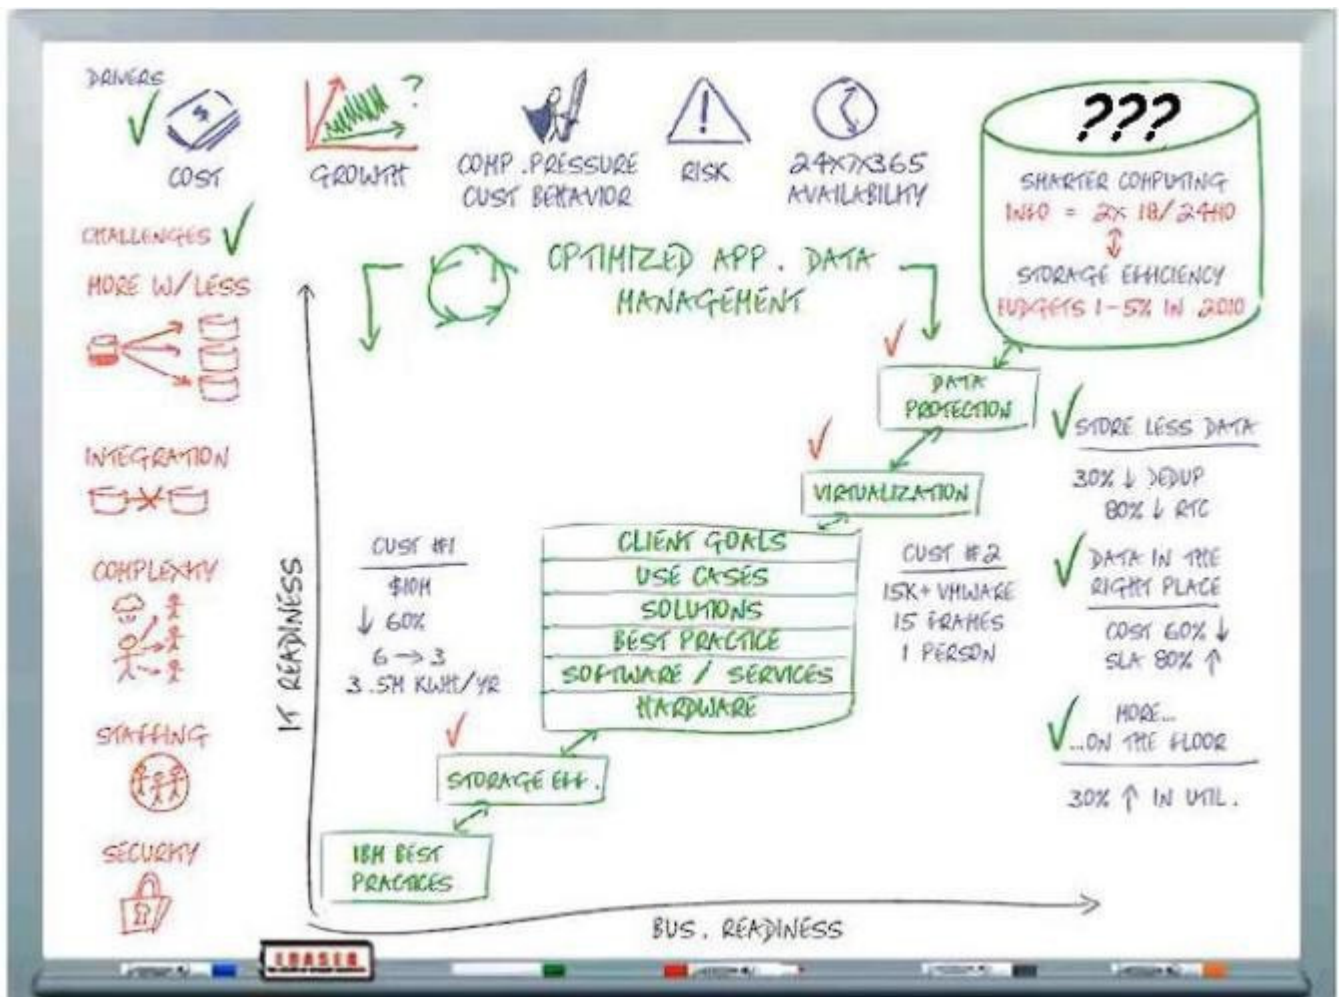 DRIVERS
COST
$
GROWTH
?
COMP. PRESSURE
CUST BEHAVIOR
!
RISK
24X7X365
AVAILABILITY
???
SMARTER COMPUTING
INFO = 2X 18/24MO
STORAGE EFFICIENCY
BUDGETS 1-5% IN 2010
CHALLENGES
MORE W/LESS
INTEGRATION
COMPLEXITY
STAFFING
SECURITY
OPTIMIZED APP. DATA
MANAGEMENT
DATA
PROTECTION
VIRTUALIZATION
CLIENT GOALS
USE CASES
SOLUTIONS
BEST PRACTICE
SOFTWARE / SERVICES
HARDWARE
STORAGE EFF.
IBM BEST
PRACTICES
CUST #1
$10M
↓ 60%
6 → 3
3.5M KWH/YR
CUST #2
15K+ VMWARE
15 FRAMES
1 PERSON
STORE LESS DATA
30% ↓ DEDUP
80% ↓ RTC
DATA IN THE
RIGHT PLACE
COST 60% ↓
SLA 80% ↑
MORE...
...ON THE FLOOR
30% ↑ IN UTIL.
IT READINESS
BUS. READINESS
ERASER